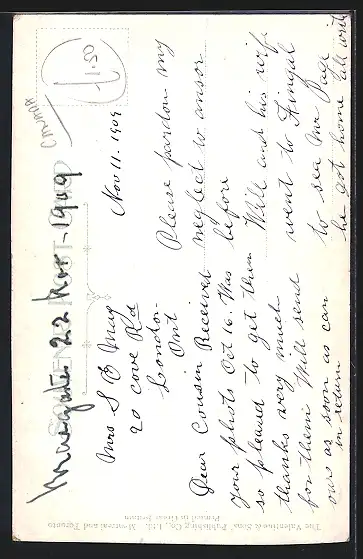 £1.50
Nov 11. 1909
Mrs S E May
20 Cove Rd
London-
Ont
Dear Cousin Received
your photo Oct 16. Was
so pleased to get them
thanks very much
for them Will send
ours as soon as can
in return
Please pardon my
neglect to ansor
before
Will and his wife
went to Fingal
to see Mr Page
he got home all
22 Nov - 1909
SOUVENIR POST CARD
The Valentine & Sons' Publishing Co., Ltd., Montreal and Toronto
Printed in Great Britain